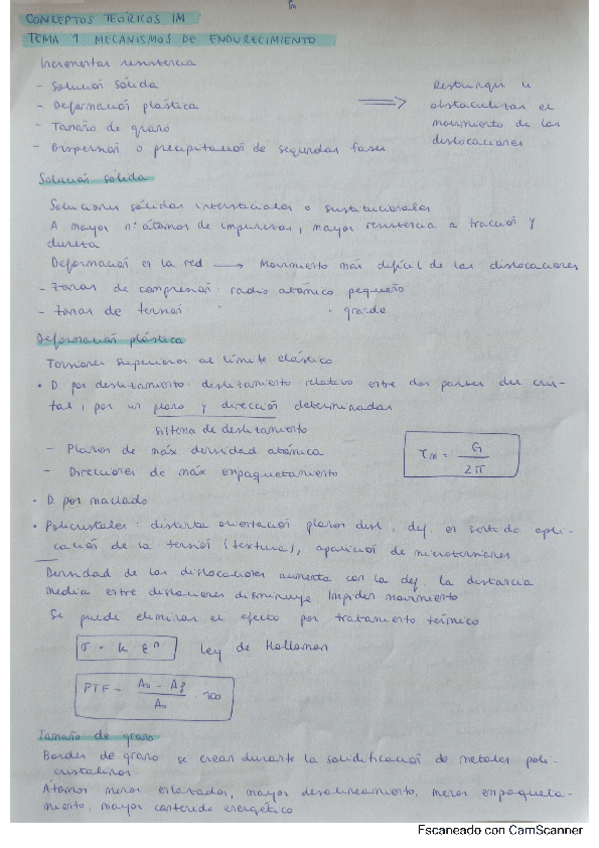 CONCEPTOS TEÓRICOS IM
TEMA 1 MECANISMOS DE ENDURECIMIENTO
Incrementar resistencia
- Solución sólida
- Deformación plástica
- Tamaño de grano
- Dispersión o precipitación de segundas fases
⟹ Restringir u
obstaculizar el
movimiento de las
dislocaciones
Solución sólida
Soluciones sólidas intersticiales o sustitucionales
A mayor nº átomos de impurezas, mayor resistencia a tracción y
dureza
Deformación en la red → Movimiento más difícil de las dislocaciones
- Zonas de compresión: radio atómico pequeño
- Zonas de tensión " grande
Deformación plástica
Tensiones superiores al límite elástico
• D. por deslizamiento: deslizamiento relativo entre dos partes del cris-
tal, por un plano y dirección determinadas
sistema de deslizamiento
- Planos de máx densidad atómica
- Direcciones de máx empaquetamiento
τm = G / 2π
• D. por maclado
• Policristales: distinta orientación planos desl., def. en sentido apli-
cación de la tensión (textura), aparición de microtensiones
Densidad de las dislocaciones aumenta con la def. la distancia
media entre dislocaciones disminuye. Impiden movimiento
Se puede eliminar el efecto por tratamiento térmico
σ = k εⁿ Ley de Hollomon
PTF = A₀ - Af / A₀ · 100
Tamaño de grano
Bordes de grano se crean durante la solidificación de metales poli-
cristalinos
Átomos menos enlazados, mayor desalineamiento, menos empaqueta-
miento, mayor contenido energético
Escaneado con CamScanner